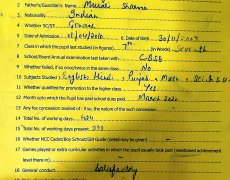 2. Father's/Guardian's Name Murari Sharma
3. Nationality Indian
4. Whether SC/ST
5. Date of Admission 01/04/2010 6. Date of Birth 30/11/2007
7. Class in which the pupil last studied (in figures) 7th (in Words) Seventh
8. School/Board Annual examination last taken with C.B.S.E
9. Whether failed, if so once/twice in the same class No
10. Subjects Studied : English, Hindi, Punjabi, Math, Sci. & S.S
11. Whether qualified for promotion to the higher class Yes
12. Month upto which the Pupil has paid school dues paid March 2020
13. Any fee concession availed of : if so, the nature of such concession
14. Total No. of working days
15. Total No. of working days present
16. Whether NCC Cadet/Boy School/Girl Guide (detail may be given)
17. Games played or extra curricular activities in which the pupil usually took part (mentioned achievement
level there in)
18. General conduct Satisfactory